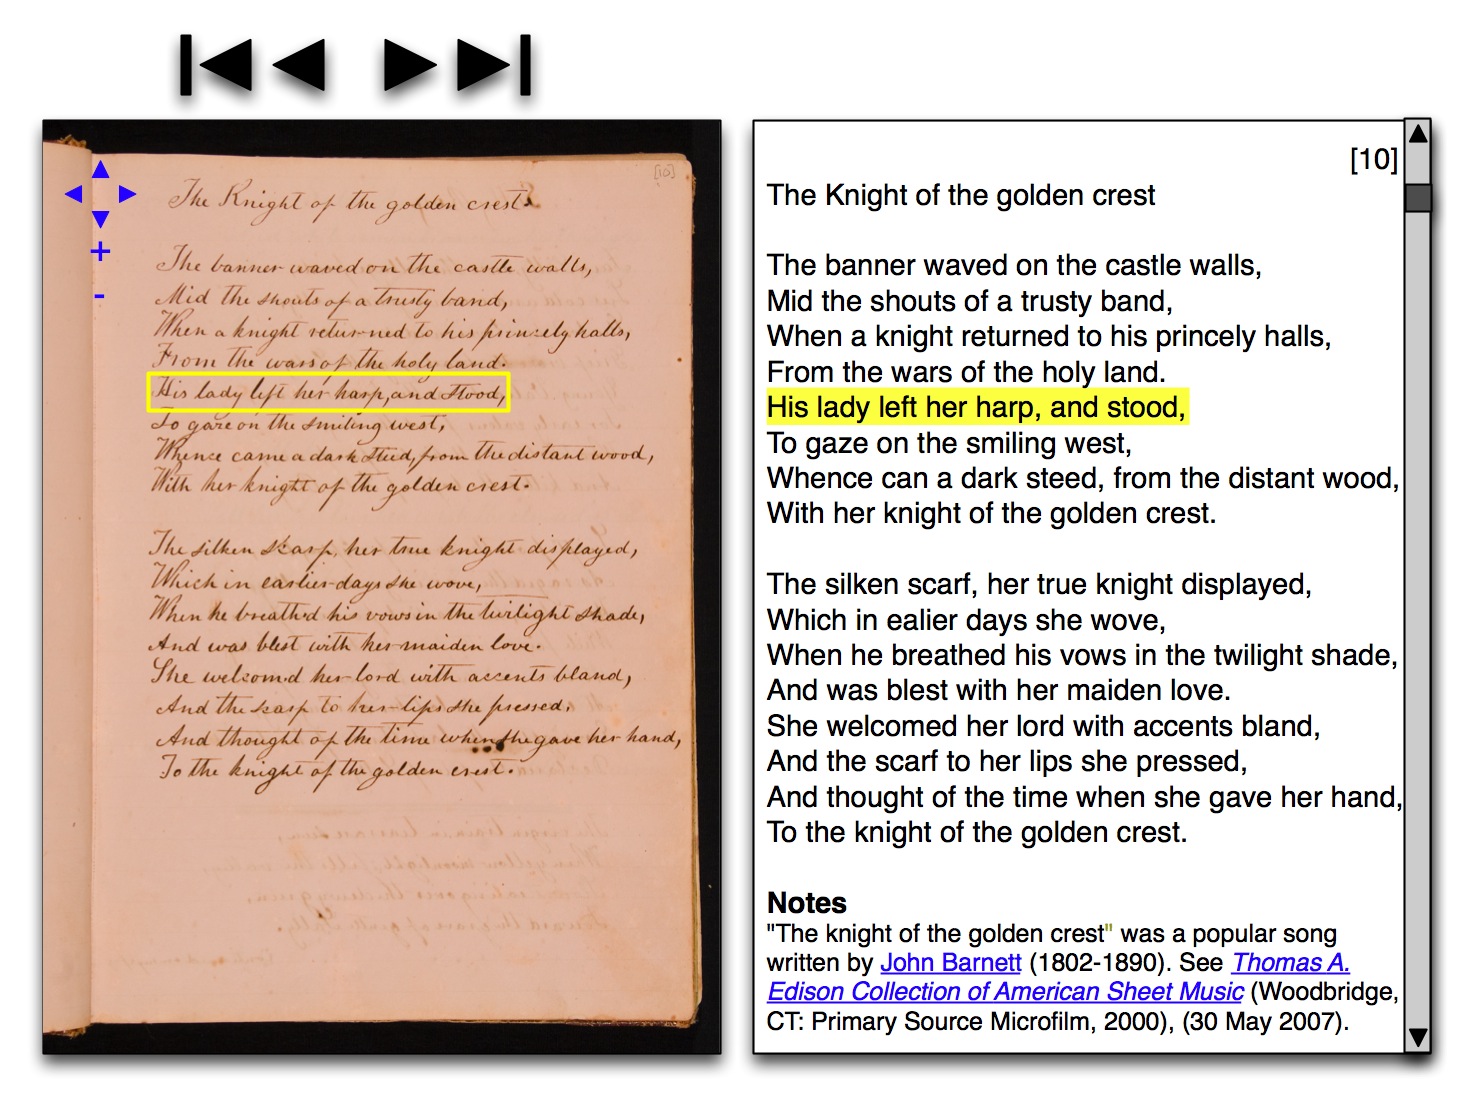 [10]
The Knight of the golden crest.
The banner waved on the castle walls,
Mid the shouts of a trusty band,
When a knight returned to his princely halls,
From the wars of the holy land.
His lady left her harp, and stood,
To gaze on the smiling west,
Whence came a dark steed, from the distant wood,
With her knight of the golden crest.
The silken scarf, her true knight displayed,
Which in earlier days she wove,
When he breath'd his vows in the twilight shade,
And was blest with her maiden love.
She welcom'd her lord with accents bland,
And the scarf to her lips she pressed,
And thought of the time when she gave her hand,
To the knight of the golden crest.
+
-
[10]
The Knight of the golden crest
The banner waved on the castle walls,
Mid the shouts of a trusty band,
When a knight returned to his princely halls,
From the wars of the holy land.
His lady left her harp, and stood,
To gaze on the smiling west,
Whence can a dark steed, from the distant wood,
With her knight of the golden crest.
The silken scarf, her true knight displayed,
Which in ealier days she wove,
When he breathed his vows in the twilight shade,
And was blest with her maiden love.
She welcomed her lord with accents bland,
And the scarf to her lips she pressed,
And thought of the time when she gave her hand,
To the knight of the golden crest.
Notes
"The knight of the golden crest" was a popular song
written by John Barnett (1802-1890). See Thomas A.
Edison Collection of American Sheet Music (Woodbridge,
CT: Primary Source Microfilm, 2000), (30 May 2007).